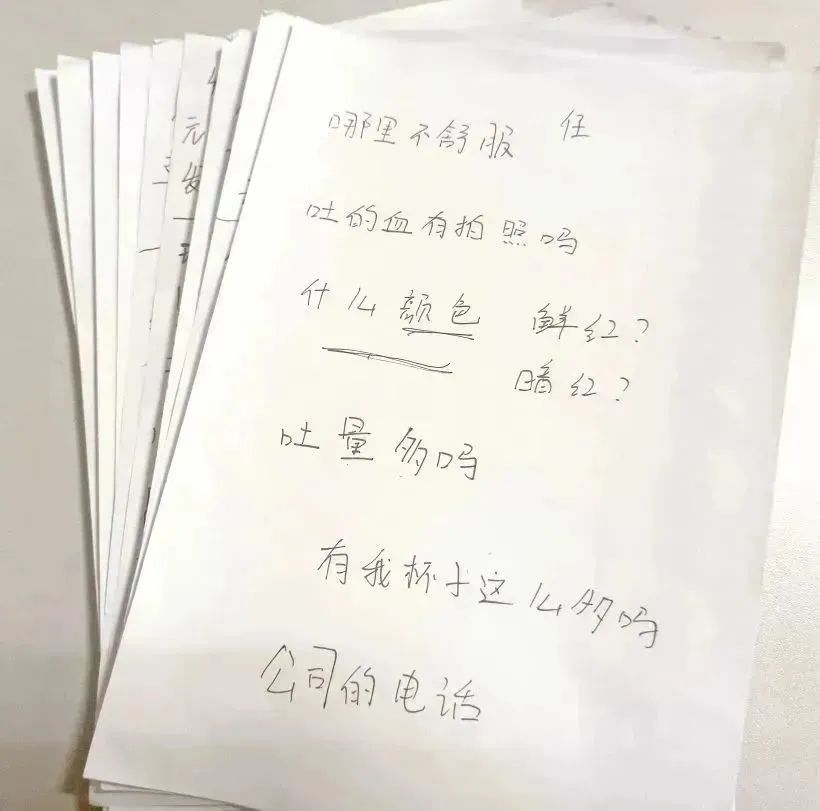 哪里不舒服 住
吐的血有拍照吗
什么颜色 鲜红?
暗红?
吐量多吗
有我杯子这么多吗
公司的电话
元
发